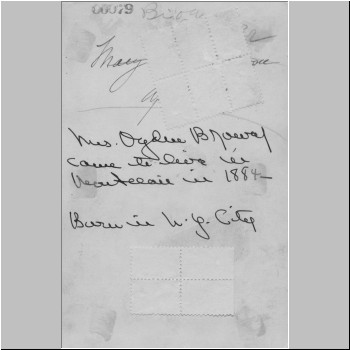 00079
Mary
Mrs. Ogden Brower
came to live in
Montclair in 1884
Born in N.Y. City